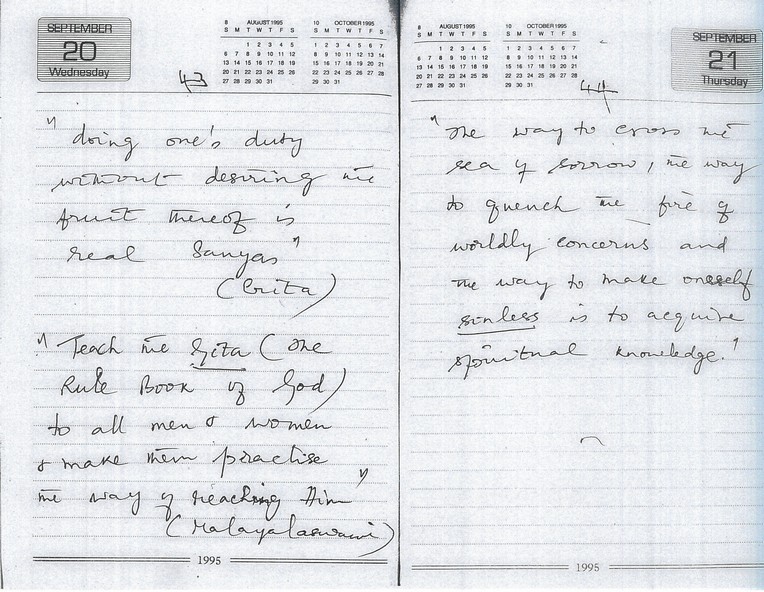 SEPTEMBER
20
Wednesday
8 AUGUST 1995
S M T W T F S
1 2 3 4 5
6 7 8 9 10 11 12
13 14 15 16 17 18 19
20 21 22 23 24 25 26
27 28 29 30 31
10 OCTOBER 1995
S M T W T F S
1 2 3 4 5 6 7
8 9 10 11 12 13 14
15 16 17 18 19 20 21
22 23 24 25 26 27 28
29 30 31
43
"doing one's duty
without desiring the
fruit thereof is
real Sanyas"
(Grita)
"Teach the Gita (The
Rule Book of God)
to all men & women
& make them practise
the way of reaching Him"
(Malayalaswami)
1995
8 AUGUST 1995
S M T W T F S
1 2 3 4 5
6 7 8 9 10 11 12
13 14 15 16 17 18 19
20 21 22 23 24 25 26
27 28 29 30 31
10 OCTOBER 1995
S M T W T F S
1 2 3 4 5 6 7
8 9 10 11 12 13 14
15 16 17 18 19 20 21
22 23 24 25 26 27 28
29 30 31
SEPTEMBER
21
Thursday
44
"The way to cross the
sea of sorrow, the way
to quench the fire of
worldly concerns and
the way to make oneself
sinless is to acquire
spiritual knowledge."
1995